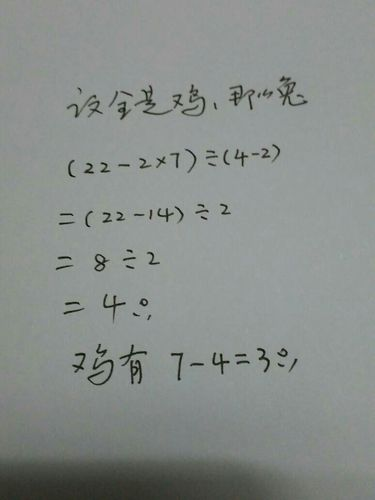 设全是鸡、那么兔
(22-2×7)÷(4-2)
=(22-14)÷2
=8÷2
=4只
鸡有 7-4=3只